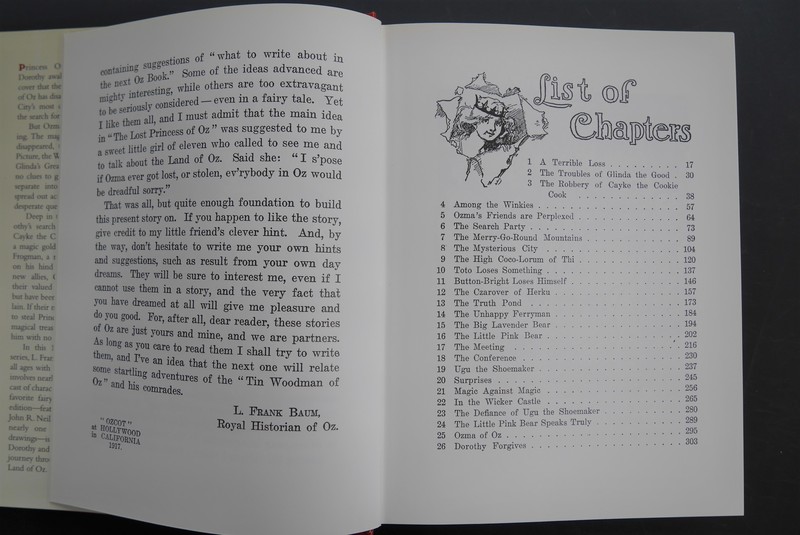 Princess O
Dorothy awa
cover that the
of Oz has disa
City's most
the search for
But Ozma
ing. The mag
disappeared,
Picture, the W
Glinda's Grea
no clues to g
separate into
spread out ac
desperate que
Deep in
othy's search
Cayke the C
a magic gold
Frogman, a
on his hind
new allies,
their valued
but have been
lain. If their
to steal Princ
magical trea
him with no
In this
series, L. Fran
all ages with
involves nearl
cast of charac
favorite fairy
edition—feat
John R. Neil
nearly one
drawings—is
Dorothy and
journey thro
Land of Oz.
containing suggestions of "what to write about in
the next Oz Book." Some of the ideas advanced are
mighty interesting, while others are too extravagant
to be seriously considered—even in a fairy tale. Yet
I like them all, and I must admit that the main idea
in "The Lost Princess of Oz" was suggested to me by
a sweet little girl of eleven who called to see me and
to talk about the Land of Oz. Said she: "I s'pose
if Ozma ever got lost, or stolen, ev'rybody in Oz would
be dreadful sorry."
That was all, but quite enough foundation to build
this present story on. If you happen to like the story,
give credit to my little friend's clever hint. And, by
the way, don't hesitate to write me your own hints
and suggestions, such as result from your own day
dreams. They will be sure to interest me, even if I
cannot use them in a story, and the very fact that
you have dreamed at all will give me pleasure and
do you good. For, after all, dear reader, these stories
of Oz are just yours and mine, and we are partners.
As long as you care to read them I shall try to write
them, and I've an idea that the next one will relate
some startling adventures of the "Tin Woodman of
Oz" and his comrades.
L. FRANK BAUM,
Royal Historian of Oz.
"OZCOT"
at HOLLYWOOD
in CALIFORNIA
1917.
List of
Chapters
1 A Terrible Loss . . . . . . . . . 17
2 The Troubles of Glinda the Good . 30
3 The Robbery of Cayke the Cookie
Cook . . . . . . . . . . . 38
4 Among the Winkies . . . . . . . . . . 57
5 Ozma's Friends are Perplexed . . . . . . . . . . 64
6 The Search Party . . . . . . . . . . 73
7 The Merry-Go-Round Mountains . . . . . . . . . . 89
8 The Mysterious City . . . . . . . . . . 104
9 The High Coco-Lorum of Thi . . . . . . . . . . 120
10 Toto Loses Something . . . . . . . . . . 137
11 Button-Bright Loses Himself . . . . . . . . . . 146
12 The Czarover of Herku . . . . . . . . . . 157
13 The Truth Pond . . . . . . . . . . 173
14 The Unhappy Ferryman . . . . . . . . . . 184
15 The Big Lavender Bear . . . . . . . . . . 194
16 The Little Pink Bear . . . . . . . . . . 202
17 The Meeting . . . . . . . . . . 216
18 The Conference . . . . . . . . . . 230
19 Ugu the Shoemaker . . . . . . . . . . 237
20 Surprises . . . . . . . . . . 245
21 Magic Against Magic . . . . . . . . . . 256
22 In the Wicker Castle . . . . . . . . . . 265
23 The Defiance of Ugu the Shoemaker . . . . . . . . . . 280
24 The Little Pink Bear Speaks Truly . . . . . . . . . . 289
25 Ozma of Oz . . . . . . . . . . 295
26 Dorothy Forgives . . . . . . . . . . 303